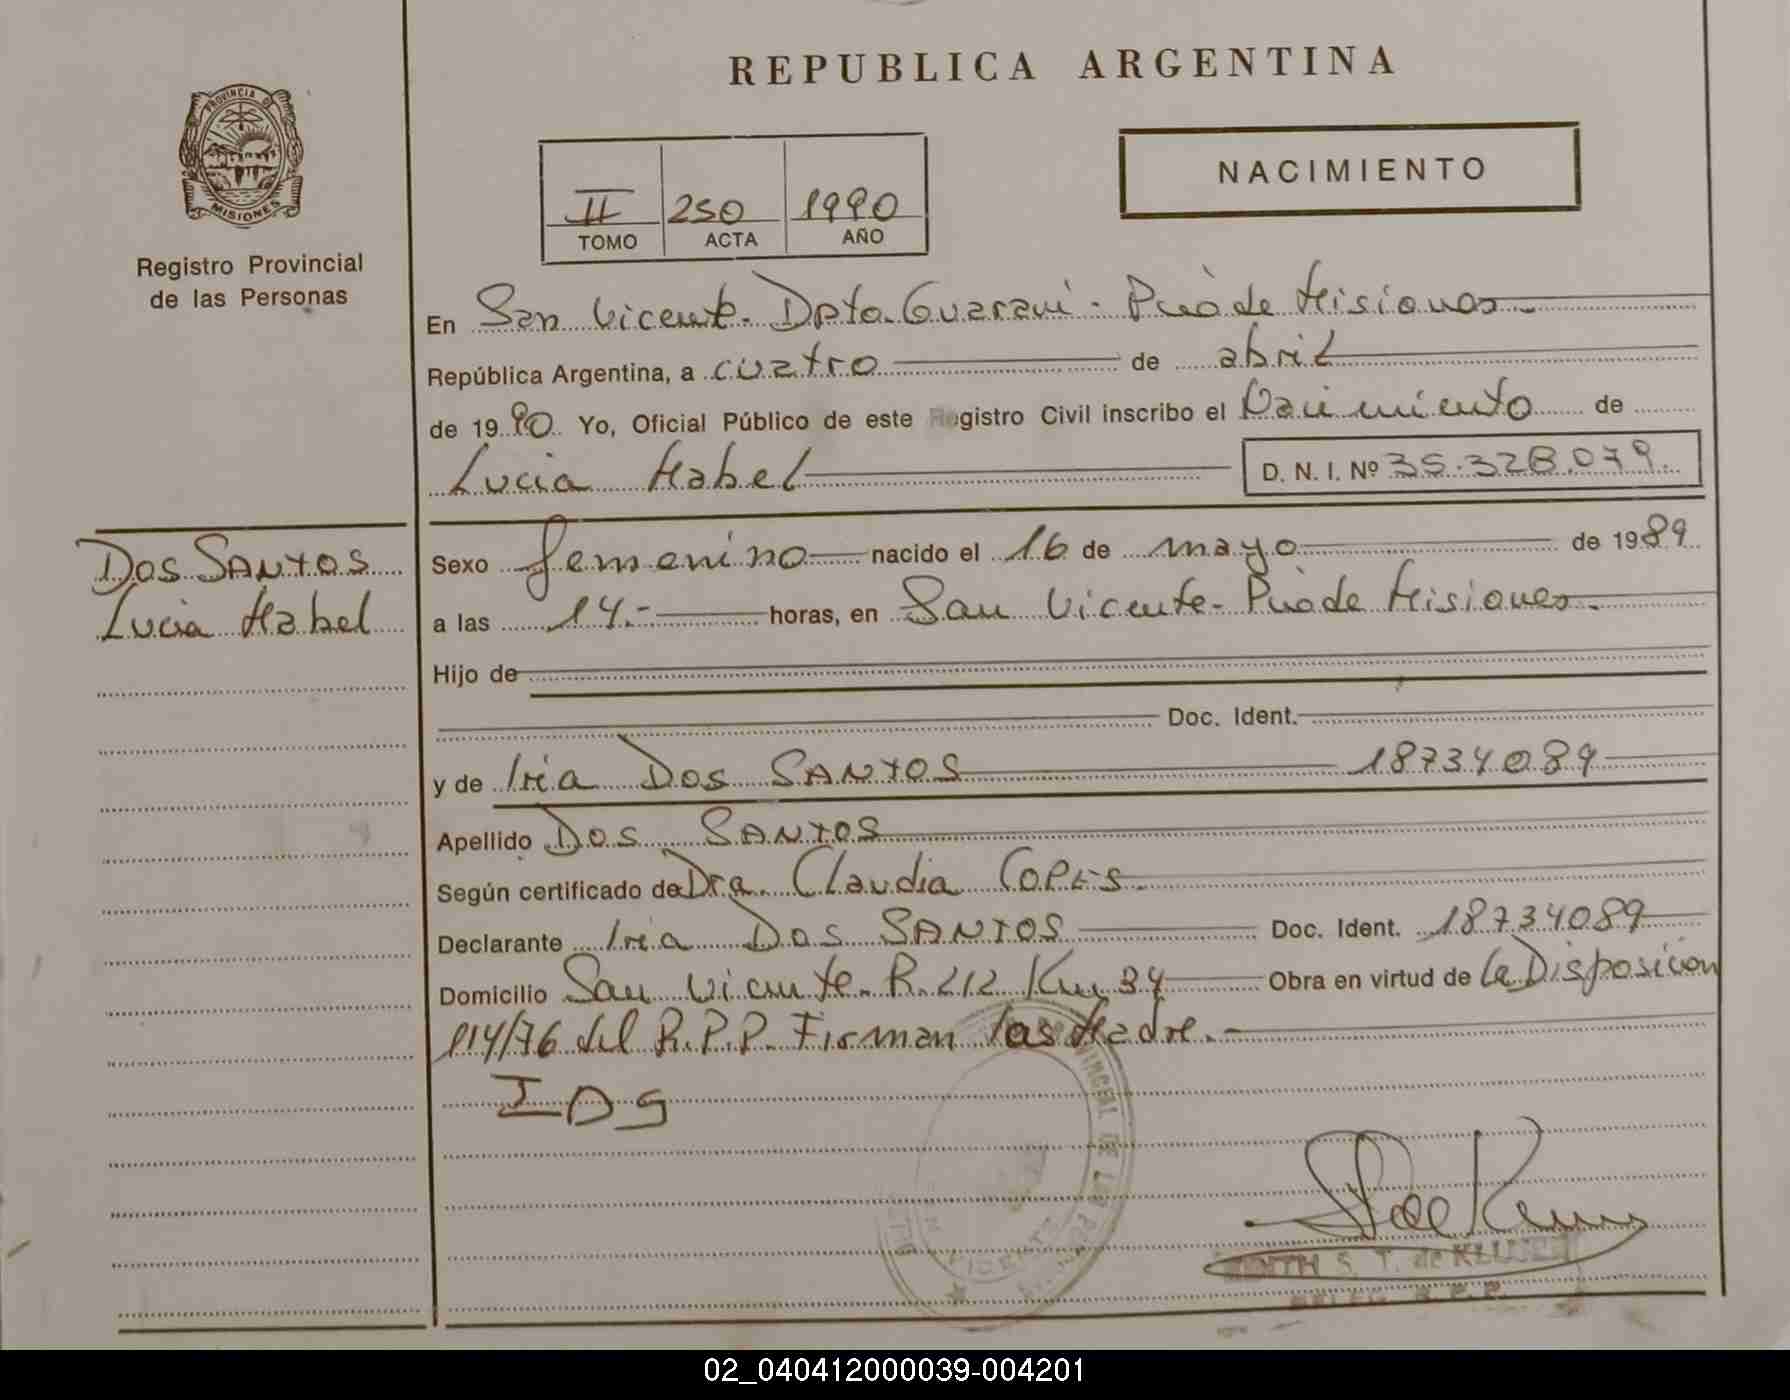 REPUBLICA ARGENTINA
PROVINCIA DE
MISIONES
Registro Provincial
de las Personas
NACIMIENTO
II 250 1990
TOMO ACTA AÑO
En San Vicente. Dpto. Guaraní - Pcia de Misiones.
República Argentina, a cuatro de abril
de 1990 Yo, Oficial Público de este Registro Civil inscribo el Nacimiento de
Lucia Mabel D. N. I. Nº 35.328.079.
Dos SANTOS
Lucia Mabel
Sexo femenino nacido el 16 de mayo de 1989
a las 14.- horas, en San Vicente - Pcia de Misiones.
Hijo de
Doc. Ident.
y de Iria Dos SANTOS 18734089
Apellido Dos SANTOS
Según certificado de Dra. Claudia COPES.
Declarante Iria Dos SANTOS Doc. Ident. 18734089
Domicilio San Vicente. R. 212 Km 34 Obra en virtud de la Disposición
114/76 del R.P.P. Firman las Madre.-
IDS
S. T. de
02_040412000039-004201